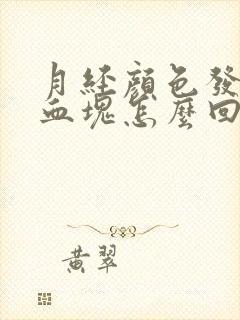 月經顏色發
血塊怎麼回
黃翠